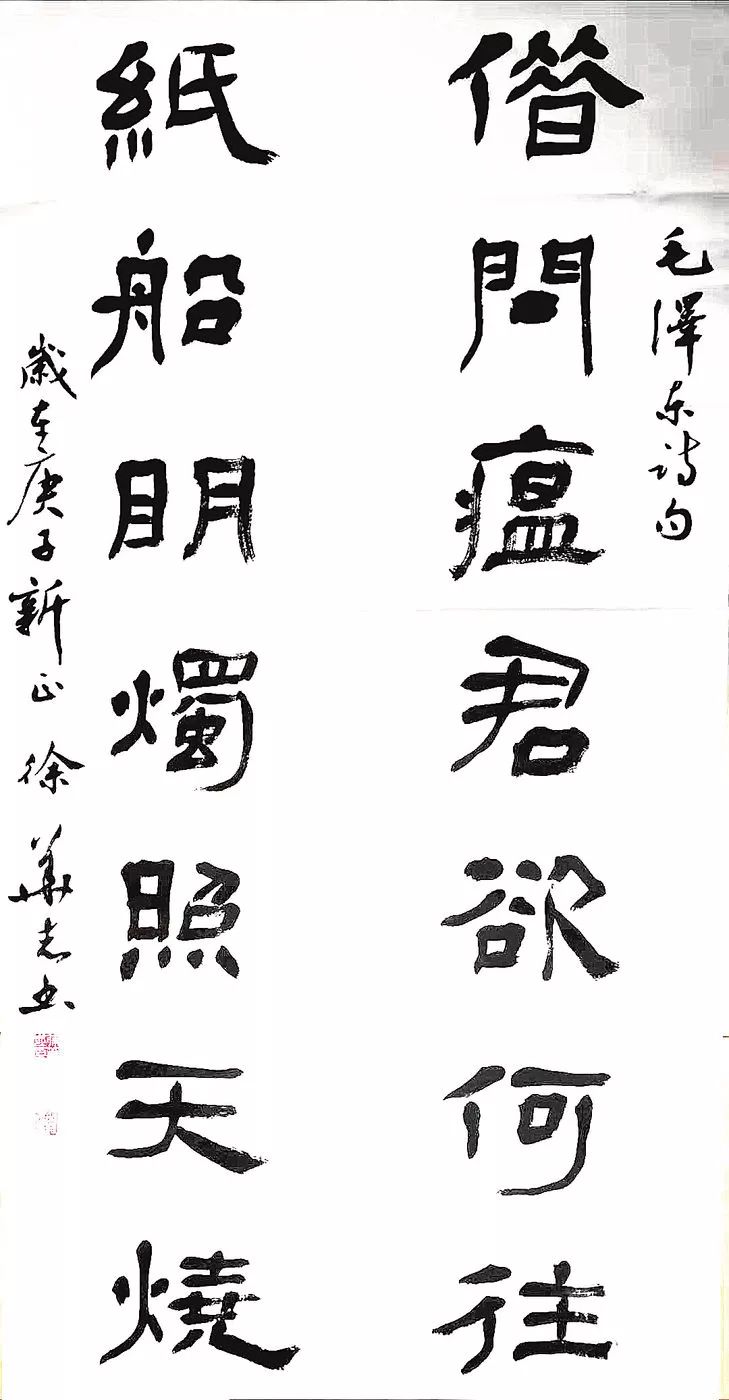 毛澤东诗句
借問瘟君欲何往
紙船明燭照天燒
歲在庚子新正 徐華志书